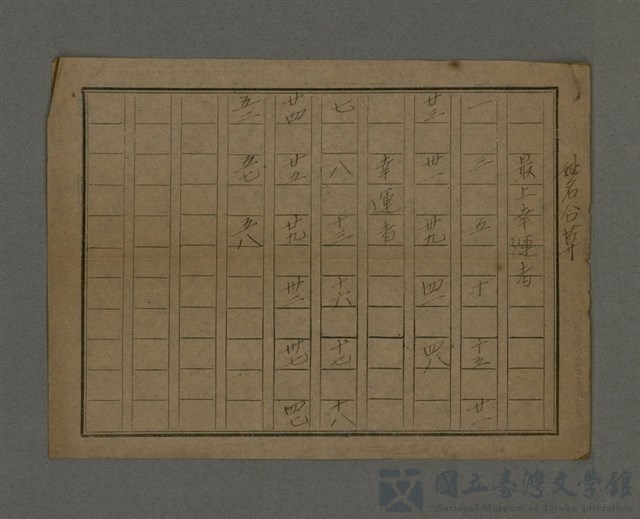 姓名公草
最上幸運者
一 三 五 十 十五 廿一
廿三 卅一 卅九 四一 四八
幸運者
七 八 十三 十六 十七 十八
廿四 廿五 廿九 卅二 卅七 四七
五二 五七 五八
國立臺灣文學館
National Museum of Taiwan Literature